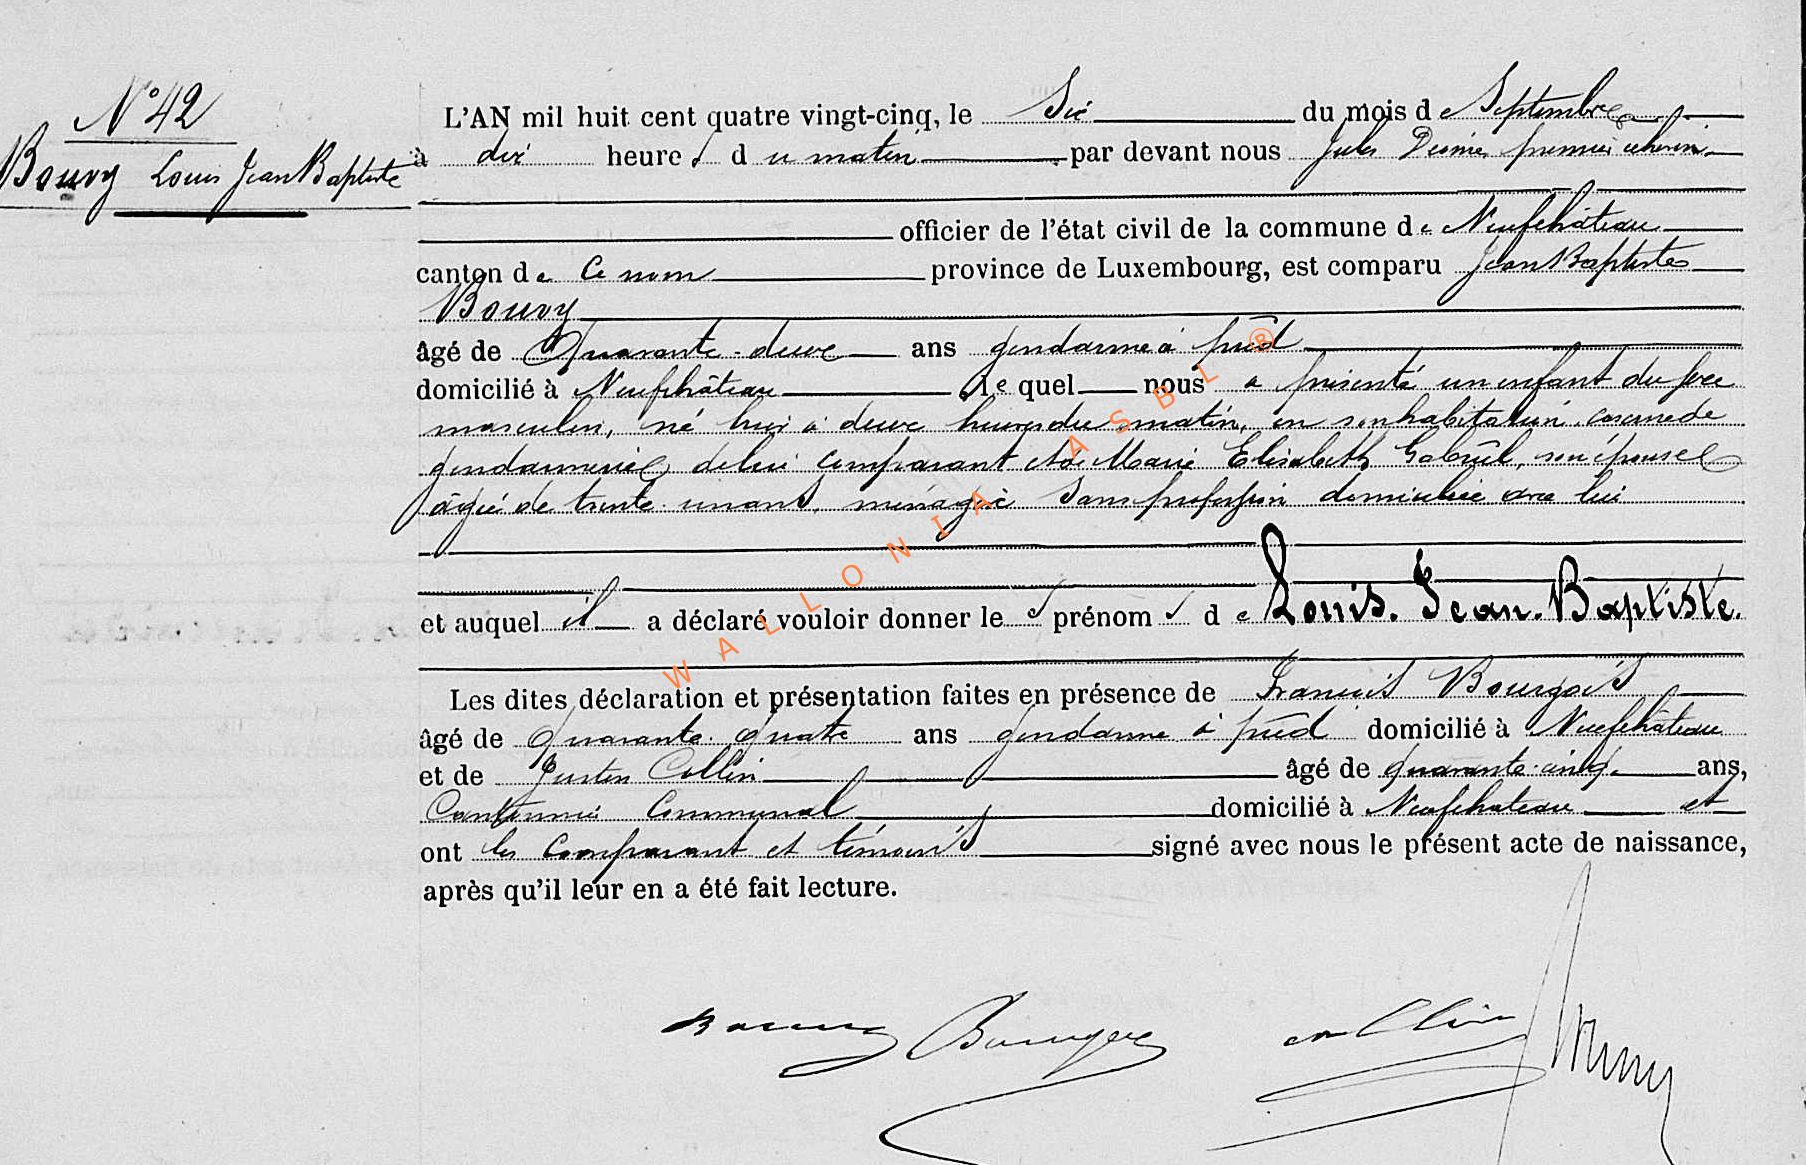 N° 42
Bouvy Louis Jean Baptiste
L'AN mil huit cent quatre vingt-cinq, le Six du mois de Septembre
à dix heures du matin par devant nous Jules premier échevin
officier de l'état civil de la commune de Neufchâteau
canton de ce nom province de Luxembourg, est comparu Jean Baptiste
Bouvy
âgé de Quarante-deux ans gendarme à pied
domicilié à Neufchâteau lequel nous a présenté un enfant du sexe
masculin, né hier à deux heures du matin, en son habitation, caserne de
gendarmerie, de lui comparant et de Marie Elisabeth Gabriel, son épouse
âgée de trente-un ans, ménagère sans profession domiciliée avec lui
et auquel il a déclaré vouloir donner les prénoms de Louis. Jean. Baptiste.
Les dites déclaration et présentation faites en présence de François Bourgois
âgé de quarante-quatre ans gendarme à pied domicilié à Neufchâteau
et de Justin Collin âgé de quarante-cinq ans,
Cantonnier Communal domicilié à Neufchâteau et
ont les comparant et témoins signé avec nous le présent acte de naissance,
après qu'il leur en a été fait lecture.
Bouvy Bourgois Collin
WALLONIA ASBL ®